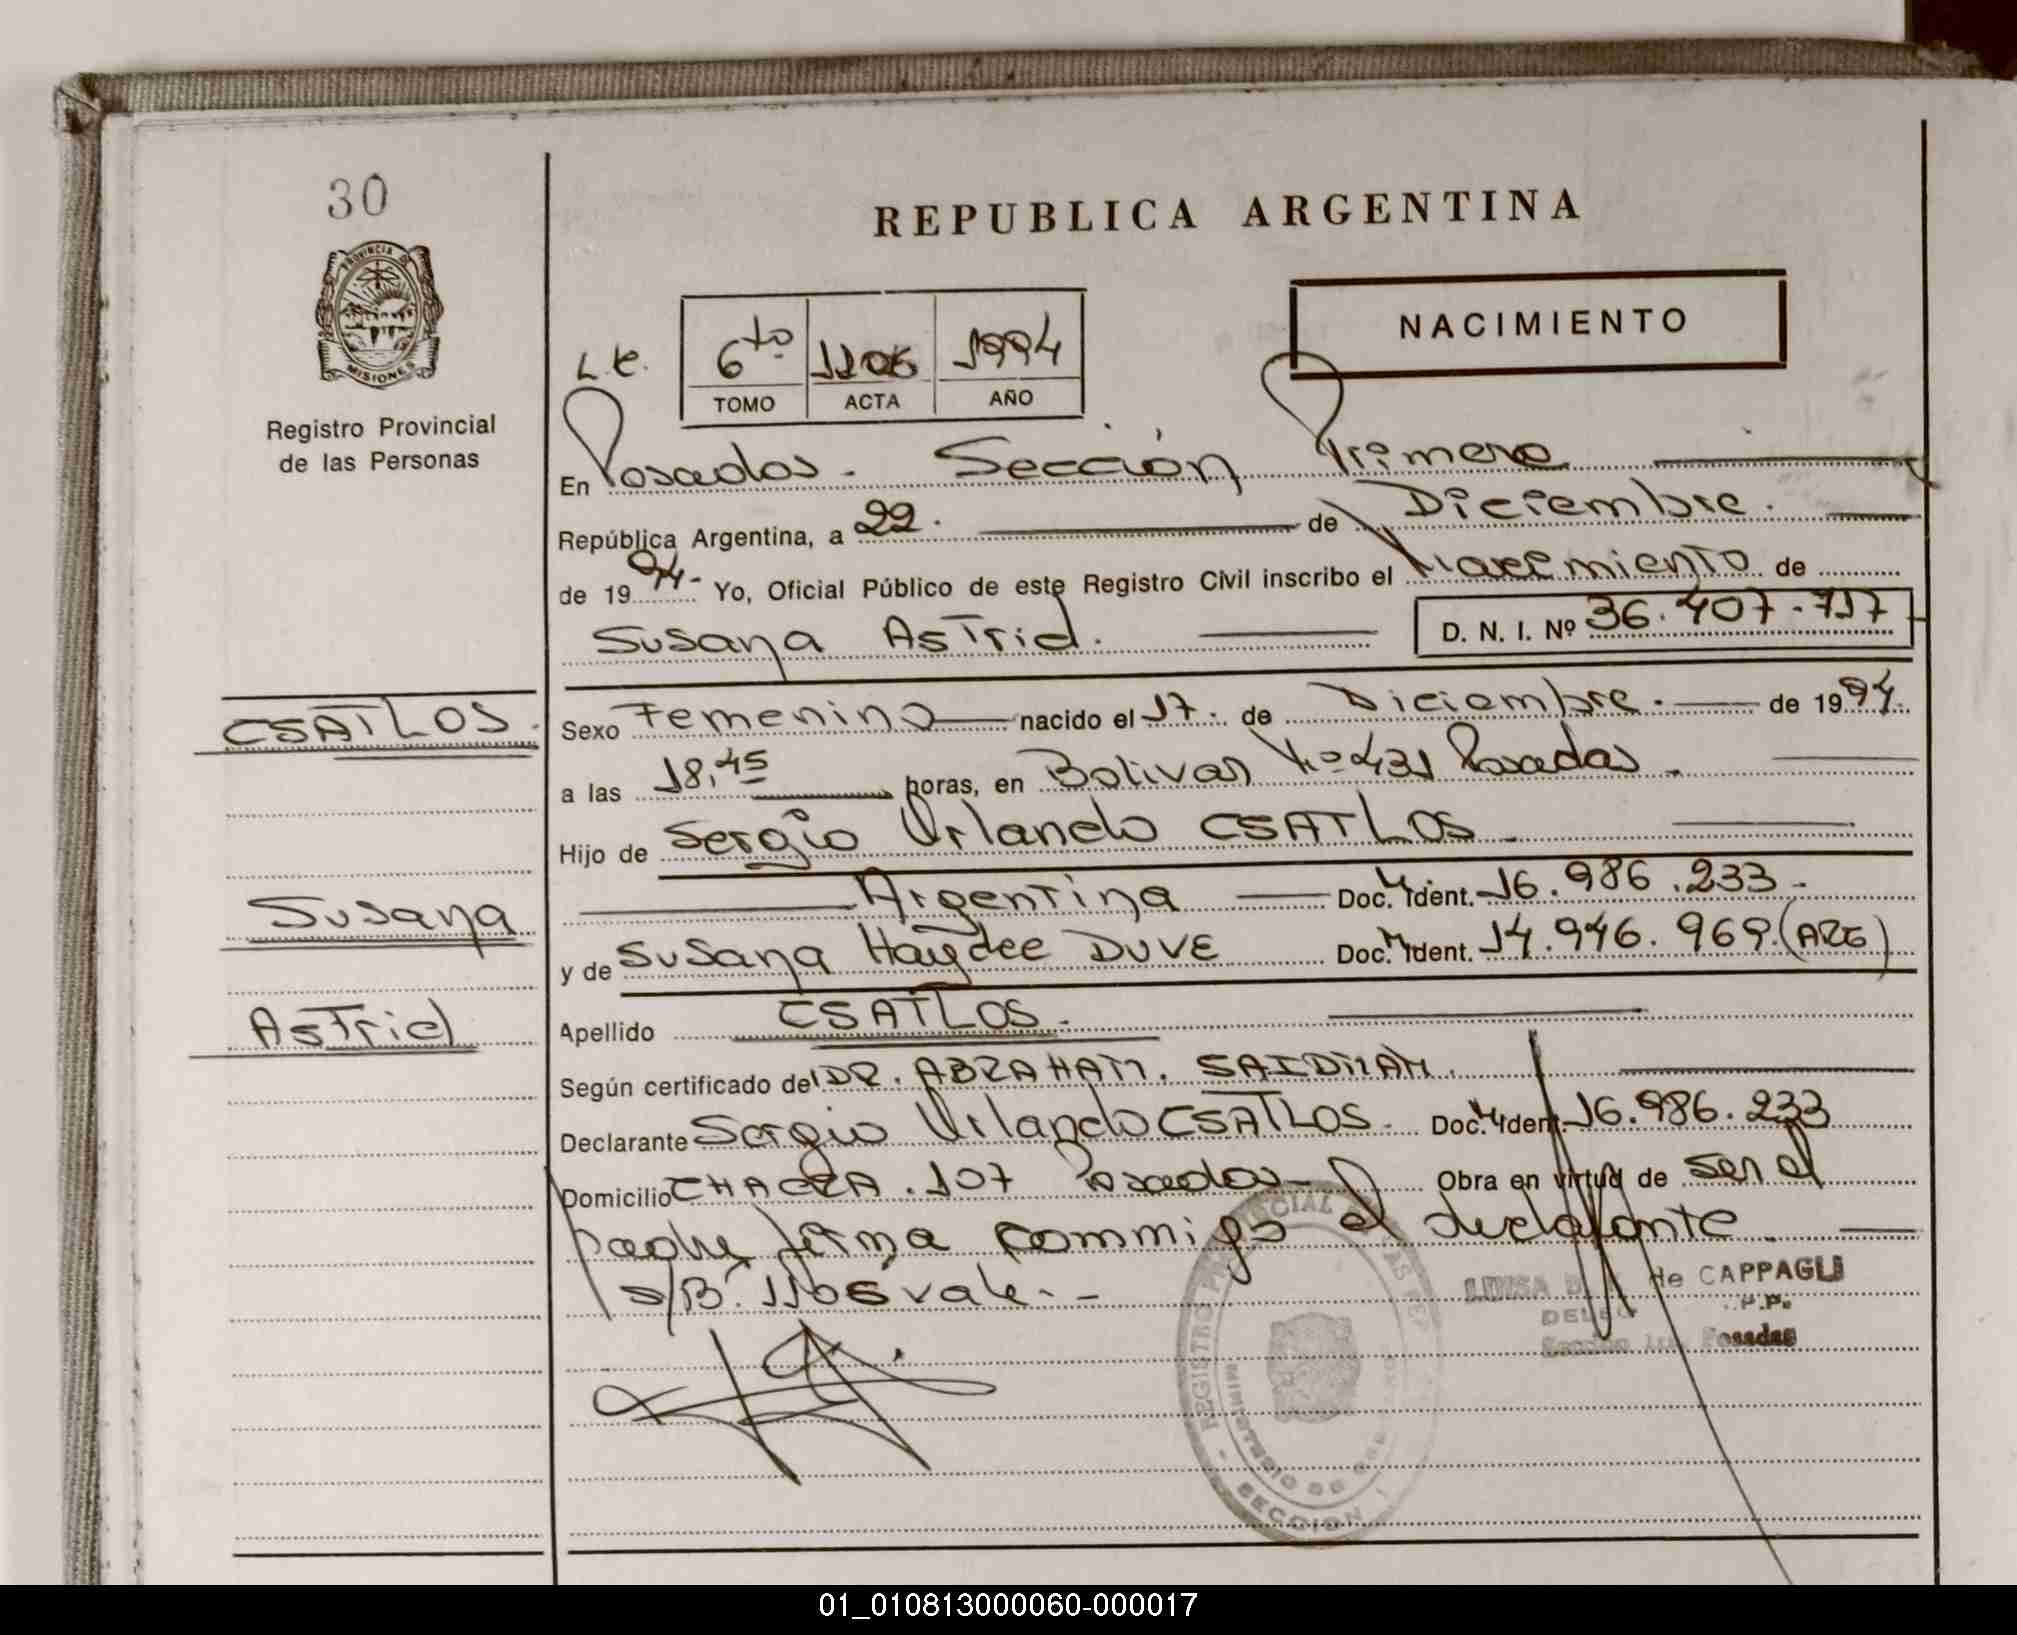 30
REPUBLICA ARGENTINA
PROVINCIA DE
MISIONES
Registro Provincial
de las Personas
NACIMIENTO
6to 1106 1994
TOMO ACTA AÑO
En Posadas. Sección Primera
República Argentina, a 22. de Diciembre.
de 1994- Yo, Oficial Público de este Registro Civil inscribo el Nacimiento de
Susana Astrid. D. N. I. Nº 36.407.717
CSATLOS.
Susana
Astrid
Sexo Femenino nacido el 17. de Diciembre. de 1994.
a las 18,45 horas, en Bolivar Nº 431 Posadas.
Hijo de Sergio Orlando CSATLOS.
Argentina Doc. Ident. 16.986.233.
y de Susana Haydee DUVE Doc. Ident. 14.946.969.(ARG)
Apellido CSATLOS.
Según certificado de DR. ABRAHAM. SAIDMAN.
Declarante Sergio Orlando CSATLOS. Doc. Ident. 16.986.233
Domicilio CHACRA. 107 Posadas- Obra en virtud de ser el
padre firma conmigo el declarante.
s/B. 1106 vale.-
LUISA de CAPPAGLI
R.P.
Sección 1ra. Posadas
01_010813000060-000017